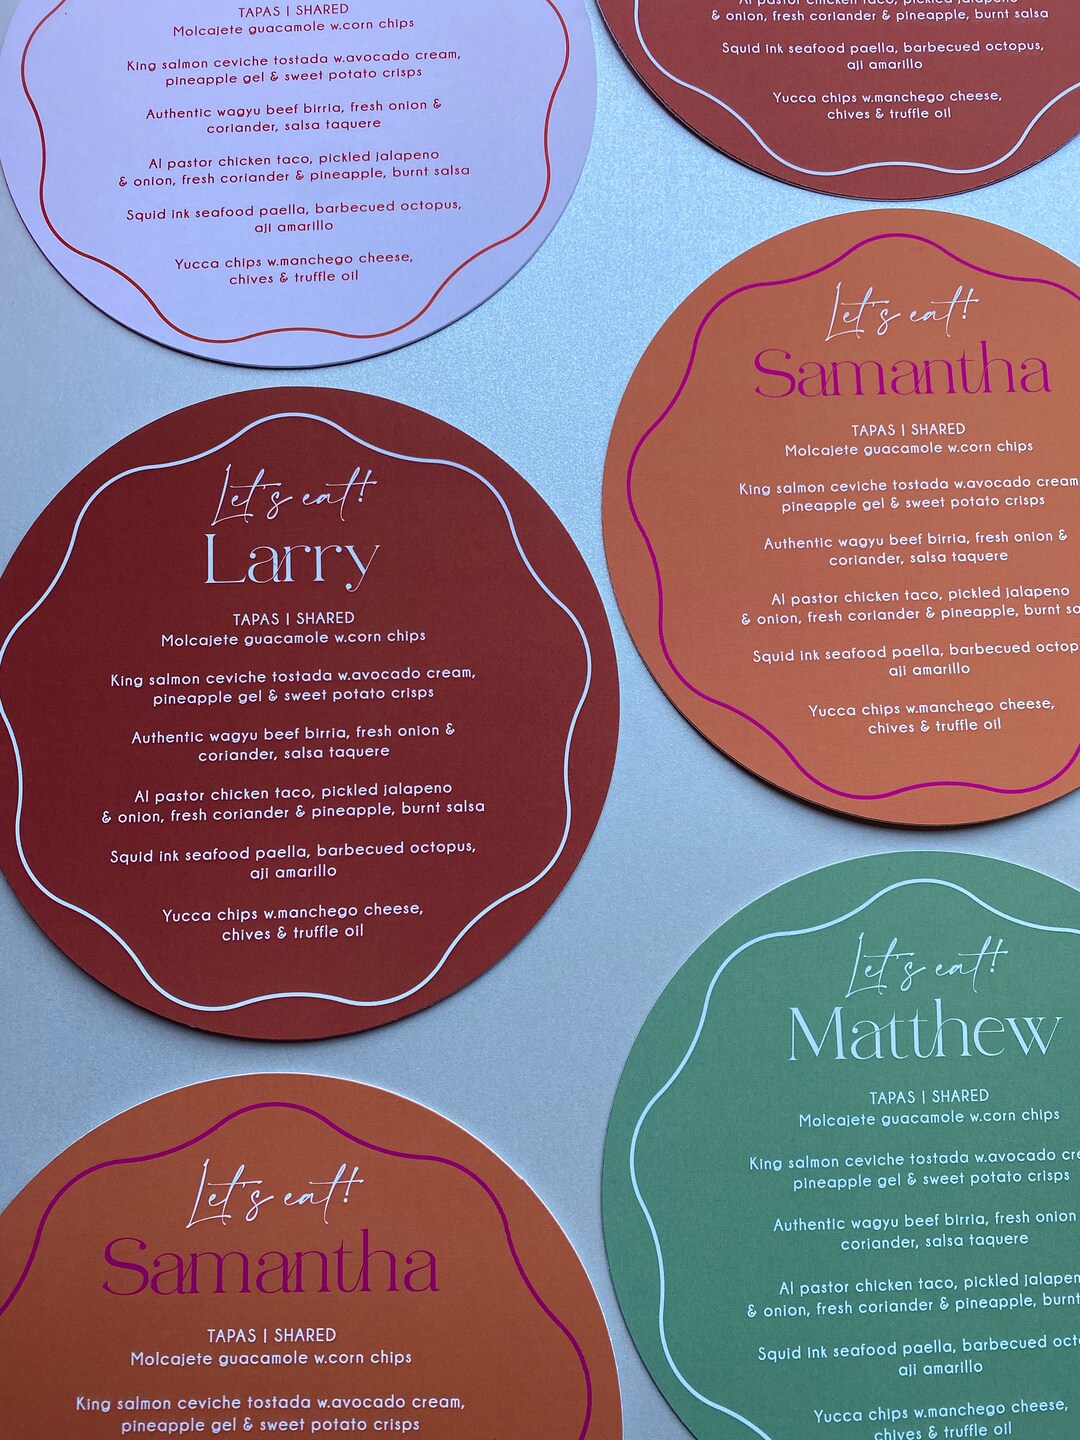 TAPAS | SHARED
Molcajete guacamole w.corn chips
King salmon ceviche tostada w.avocado cream,
pineapple gel & sweet potato crisps
Authentic wagyu beef birria, fresh onion &
coriander, salsa taquere
Al pastor chicken taco, pickled jalapeno
& onion, fresh coriander & pineapple, burnt salsa
Squid ink seafood paella, barbecued octopus,
aji amarillo
Yucca chips w.manchego cheese,
chives & truffle oil
Al pastor chicken taco, pickled jalapeno
& onion, fresh coriander & pineapple, burnt salsa
Squid ink seafood paella, barbecued octopus,
aji amarillo
Yucca chips w.manchego cheese,
chives & truffle oil
Let's eat!
Samantha
TAPAS | SHARED
Molcajete guacamole w.corn chips
King salmon ceviche tostada w.avocado cream
pineapple gel & sweet potato crisps
Authentic wagyu beef birria, fresh onion &
coriander, salsa taquere
Al pastor chicken taco, pickled jalapeno
& onion, fresh coriander & pineapple, burnt
Squid ink seafood paella, barbecued
aji amarillo
Yucca chips w.manchego cheese,
chives & truffle oil
Let's eat!
Larry
TAPAS | SHARED
Molcajete guacamole w.corn chips
King salmon ceviche tostada w.avocado cream,
pineapple gel & sweet potato crisps
Authentic wagyu beef birria, fresh onion &
coriander, salsa taquere
Al pastor chicken taco, pickled jalapeno
& onion, fresh coriander & pineapple, burnt salsa
Squid ink seafood paella, barbecued octopus,
aji amarillo
Yucca chips w.manchego cheese,
chives & truffle oil
Let's eat!
Matthew
TAPAS | SHARED
Molcajete guacamole w.corn chips
King salmon ceviche tostada w.avocado
pineapple gel & sweet potato crisps
Authentic wagyu beef birria, fresh onion
coriander, salsa taquere
Al pastor chicken taco, pickled
& onion, fresh coriander & pineapple, burnt
Squid ink seafood paella, barbecued
aji amarillo
Yucca chips w.manchego cheese,
chives & truffle oil
Let's eat!
Samantha
TAPAS | SHARED
Molcajete guacamole w.corn chips
King salmon ceviche tostada w.avocado cream,
pineapple gel & sweet potato crisps